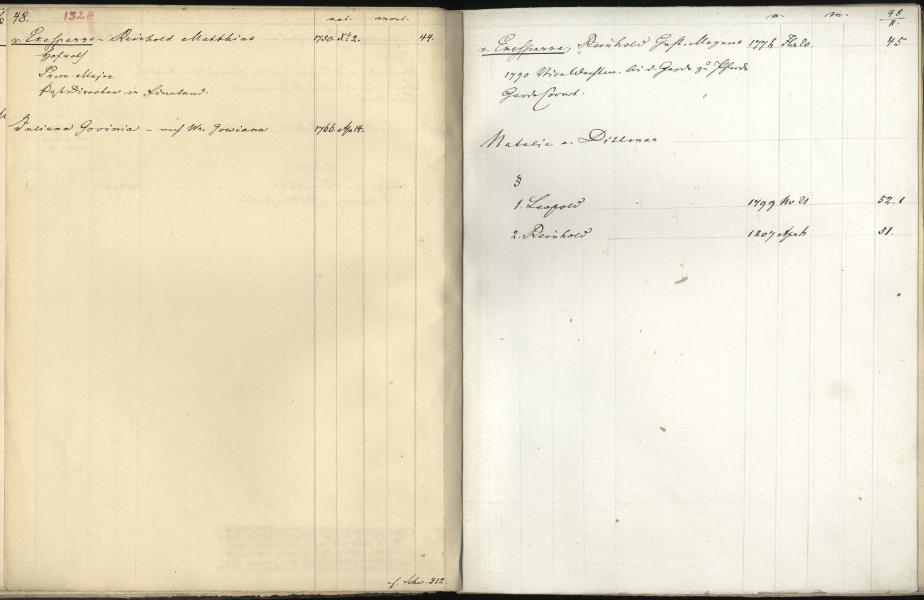 48. 132
nat. mort.
v. Exesparre - Reinhold Matthias 1750. 2. 44.
Hofrath
Prem. Major
Post Director in Finnland.
Juliana Govinia - 1766. Apr 14.
cf. Schw. 212.
n. m. 48
v. Exesparre, Reinhold Gust. Magnus 1774 20. 45
1790 Vice Wachtm. bei d. Garde zu Pferde
Garde
Natalie v. Dittmar
§
1. Leopold 1799 Nov 21 52. 1
2. Reinhold 1807 Apr 51.